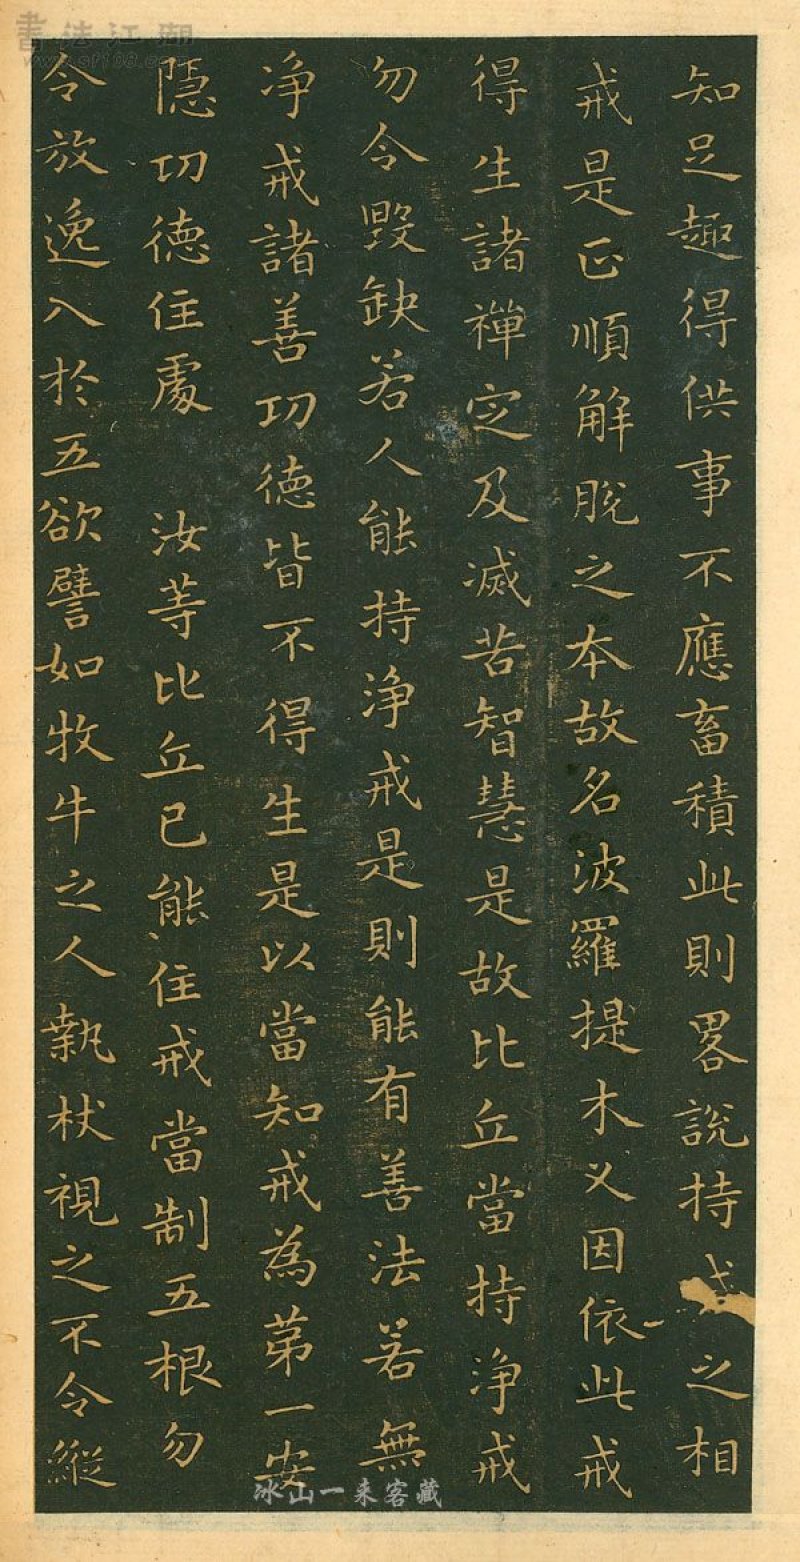 知足趣得供事不應畜積此則畧說持戒之相
戒是正順解脫之本故名波羅提木叉因依此戒
得生諸禪定及滅苦智慧是故比丘當持淨戒
勿令毀缺若人能持淨戒是則能有善法若無
淨戒諸善功德皆不得生是以當知戒為第一安
隱功德住處 汝等比丘已能住戒當制五根勿
令放逸入於五欲譬如牧牛之人執杖視之不令縱
書法江湖
冰山一来客藏